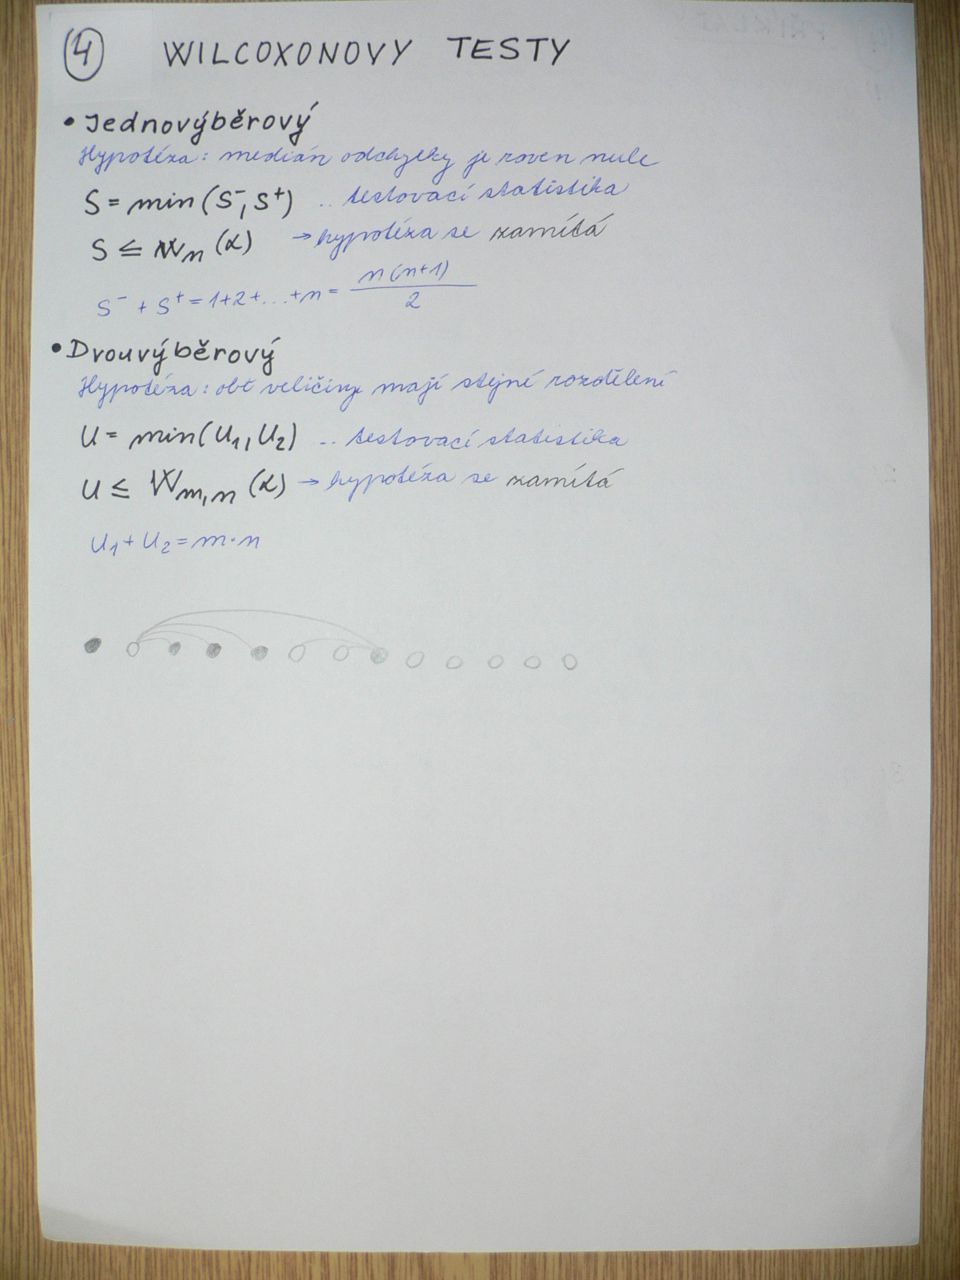 4 WILCOXONOVY TESTY
• Jednovýběrový
Hypotéza: medián odchylky je roven nule
S = min(S⁻, S⁺) .. testovací statistika
S ≤ Wₙ(α) → hypotéza se zamítá
S⁻ + S⁺ = 1+2+...+n = n(n+1)/2
• Dvouvýběrový
Hypotéza: obě veličiny mají stejné rozdělení
U = min(U₁, U₂) .. testovací statistika
U ≤ Wₘ,ₙ(α) → hypotéza se zamítá
U₁ + U₂ = m·n